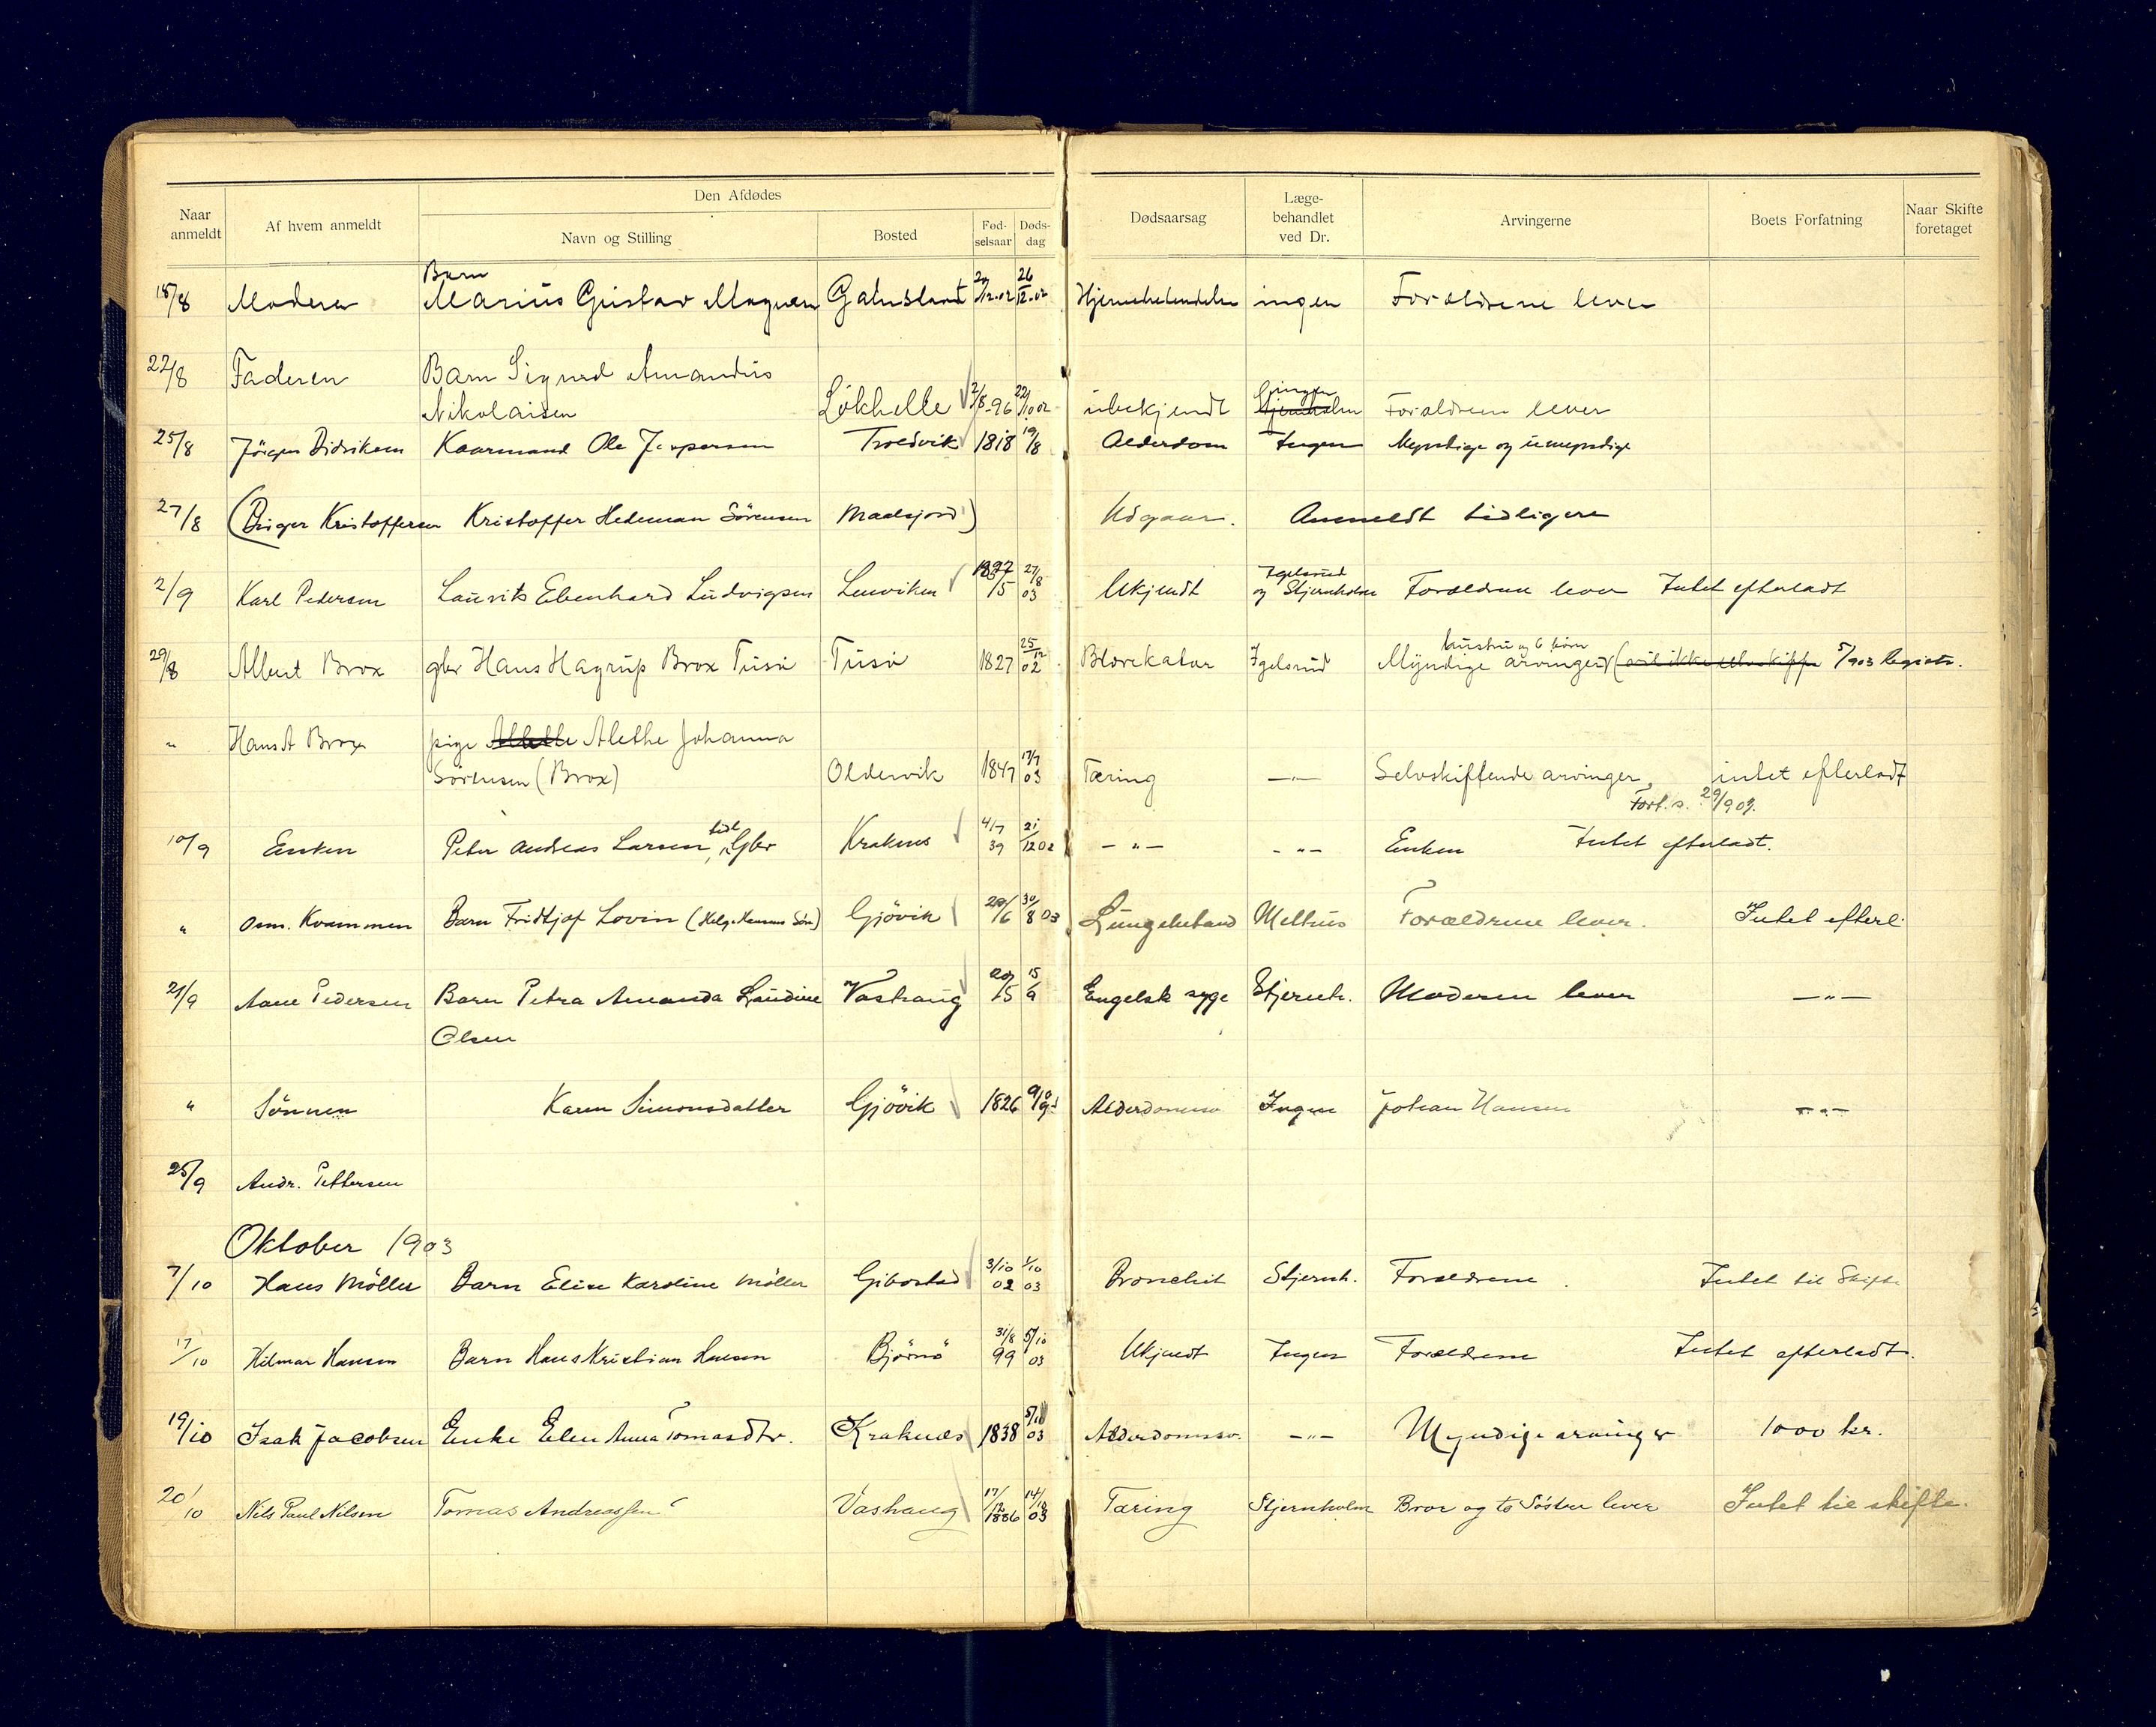 Den Afdødes
Naar anmeldt | Af hvem anmeldt | Navn og Stilling | Bosted | Fød-selsaar | Døds-dag | Dødsaarsag | Læge-behandlet ved Dr. | Arvingerne | Boets Forfatning | Naar Skifte foretaget
Barn
18/8 Moderen Marius Gustav Magnus 12-02 26/12-02 ingen Forældrene lever
22/8 Faderen Barn Sigurd Amandus
Nikolaisen Lökhelle 2/8-96 22/10 02 übekjendt ingen Stjernholm Forældrene lever
25/8 Jörgen Didriksen Kaarmand Ole Jespersen Troldvik 1818 19/8 Alderdom Ingen Myndige og umyndige
27/8 (Birger Kristoffersen Kristoffer Hedeman Sörensen Maalsjord) Udgaar. Anmeldt tidligere
2/9 Karl Pedersen Laurits Ebenhard Ludvigsen Lenviken 1897 /5 27/8 03 Ukjendt Igelsrud og Stjernholm Forældrene lever Intet efterladt
hustru og 6 börn
29/8 Albert Brox gbr Hans Hagrup Brox Tüsö Tüsö 1827 25/12 02 Blærekatar Igelsrud Myndige arvinger (vil ikke selvskifte 5/903 Registr.
" Hans A Brox pige Alethe Alethe Johanna
Sörensen (Brox) Oldervik 1847 17/7 03 Tæring —"— Selvskiftende arvinger, intet efterladt
Forf. s. 29/903.
10/9 Enken Peter Andreas Larsen, tidl Gbr Kraknes 4/7 39 21/12 02 —"— —"— Enken Intet efterladt.
" Osm. Kvammen Barn Fridtjof Lovin (Helge Hansens Sön) Gjövik /6 30/8 03 Lungebetænd Melhus Forældrene lever. Intet efterl.
21/9 Aane Pedersen Barn Petra Amanda Laudine Vashaug 20/5 15/9 Engelsk syge Stjernh. Moderen lever —"—
Olsen
" Sönnen Karen Simonsdatter Gjövik 1826 Alderdomssv Ingen Johan Hansen —"—
25/9 Andr. Pettersen
Oktober 1903
7/10 Hans Möller Barn Elise Karoline Möller Gibostad 3/10 02 1/10 03 Bronchit Stjernh. Forældrene. Intet til Skifte
17/10 Hilmar Hansen Barn Hans Kristian Hansen Björnö 31/8 99 5/10 03 Ukjendt Ingen Forældrene Intet efterladt.
19/10 Isak Jacobsen Enke Elen Anna Tomasdtr. Kraknes 1838 5/10 03 Alderdomssv. —"— Myndige arvinger 1000 kr.
20/10 Nils Paul Nilsen Tomas Andreassen Vashaug 17/12 1886 14/10 03 Tæring Stjernholm Bror og to Söstre lever Intet til skifte.